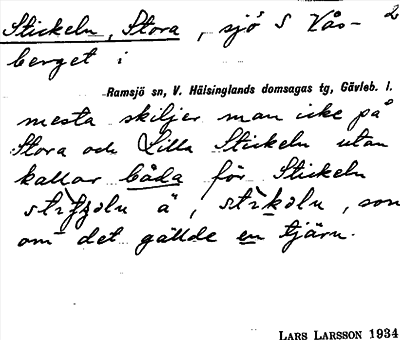 Stickeln, Stora, sjö S Vås- 2
berget i
Ramsjö sn, V. Hälsinglands domsagas tg, Gävleb. l.
mesta skiljer man icke på
Stora och Lilla Stickeln utan
kallar båda för Stickeln
ä, som
om det gällde en tjärn.
LARS LARSSON 1934